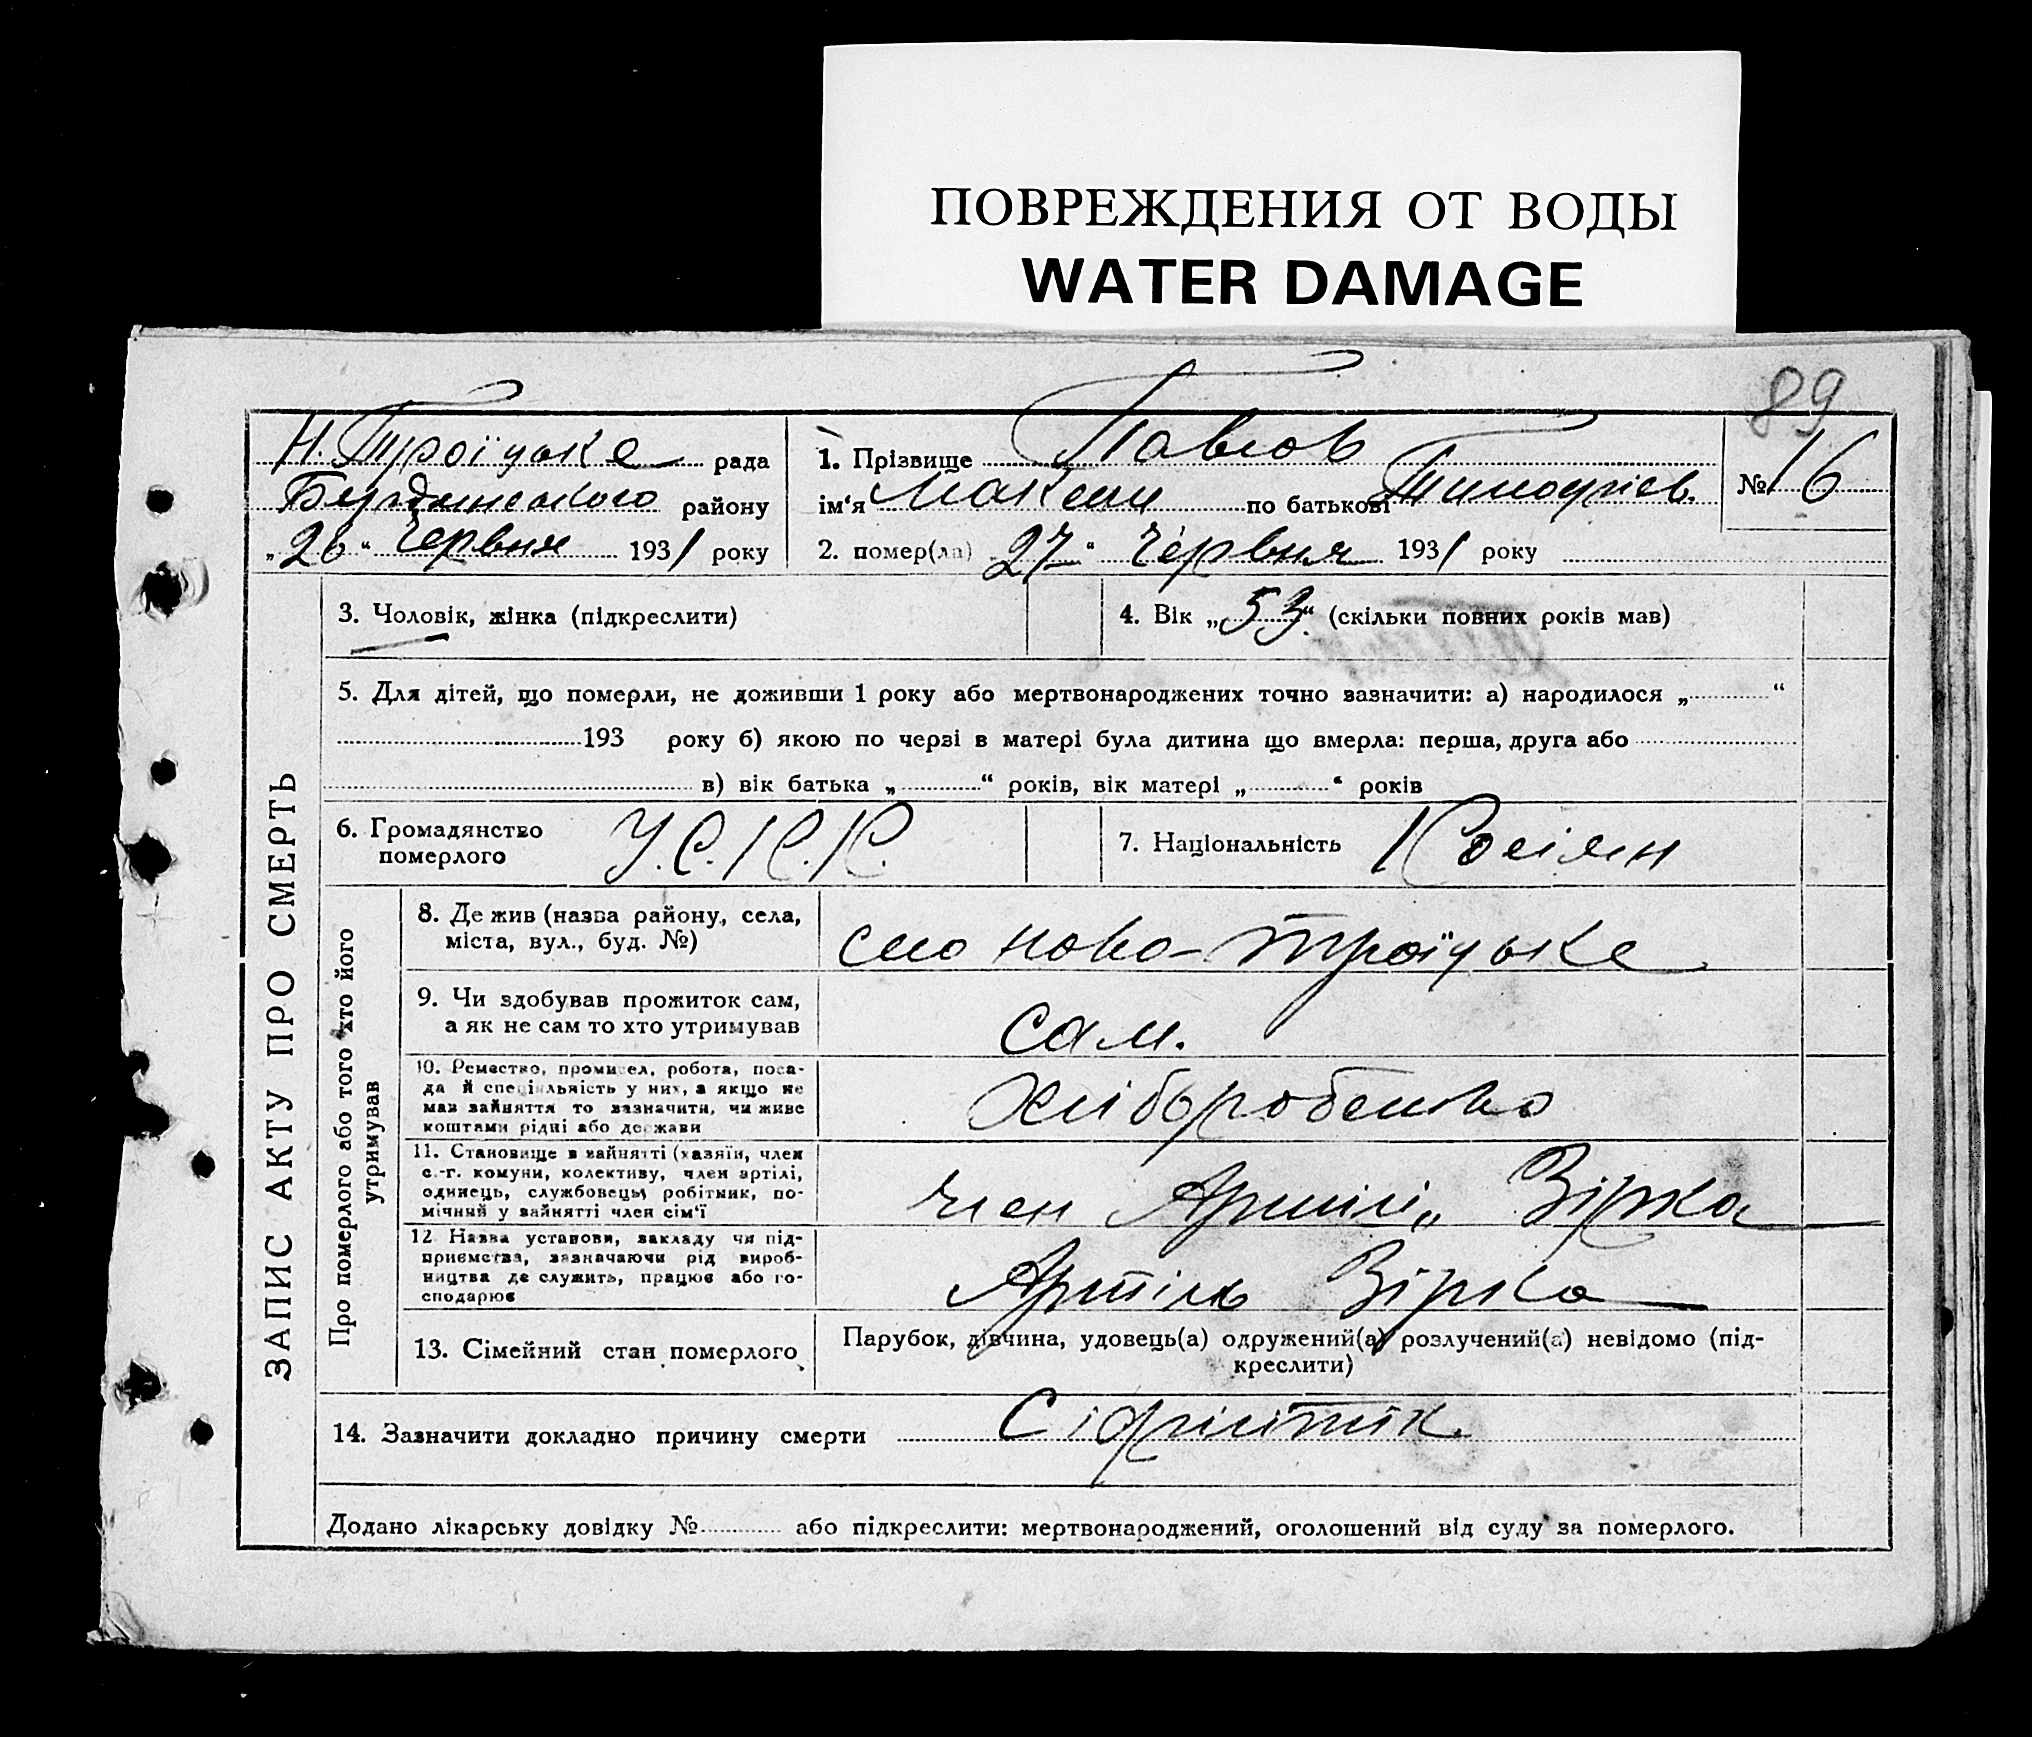 ПОВРЕЖДЕНИЯ ОТ ВОДЫ
WATER DAMAGE
89
Н. Троїцьке рада
Бердянського району
„26“ Червня 1931 року
1. Прізвище Павлов
ім‘я Максим по батькові Тимофієв.
2. помер(ла) „27“ Червня 1931 року
№ 16
ЗАПИС АКТУ ПРО СМЕРТЬ
3. Чоловік, жінка (підкреслити)
4. Вік „53“ (скільки повних років мав)
5. Для дітей, що померли, не доживши 1 року або мертвонароджених точно зазначити: а) народилося „ “
193 року б) якою по черзі в матері була дитина що вмерла: перша, друга або
в) вік батька „ “ років, вік матері „ “ років
6. Громадянство
померлого
У.С.Р.Р.
7. Національність Росіян
Про померлого або того хто його
утримував
8. Де жив (назва району, села,
міста, вул., буд. №)
село Ново-Троїцьке
9. Чи здобував прожиток сам,
а як не сам то хто утримував
сам.
10. Ремество, промисел, робота, поса-
да й спеціяльність у них, а якщо не
мав зайняття то зазначити, чи живе
коштами рідні або держави
Хліборобство
11. Становище в зайнятті (хазяїн, член
с.-г. комуни, колективу, член артілі,
одинець, службовець, робітник, по-
мічний у зайнятті член сім‘ї
член Артілі „ Зірка
12 Назва установи, закладу чи під-
приємства, зазначаючи рід вироб-
ництва де служить, працює або го-
сподарює
Артіль Зірка
13. Сімейний стан померлого
Парубок, дівчина, удовець(а) одружений(а) розлучений(а) невідомо (під-
креслити)
14. Зазначити докладно причину смерти Сіфилітик.
Додано лікарську довідку № або підкреслити: мертвонароджений, оголошений від суду за померлого.